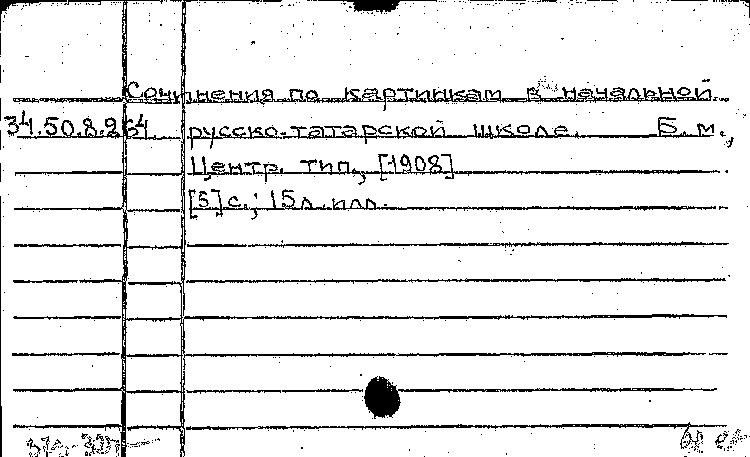 Сочинения по картинкам в начальной
34.50.8.264 русско-татарской школе. Б.м.,
Центр. тип., [1908]
[5]с.; 15л.илл.